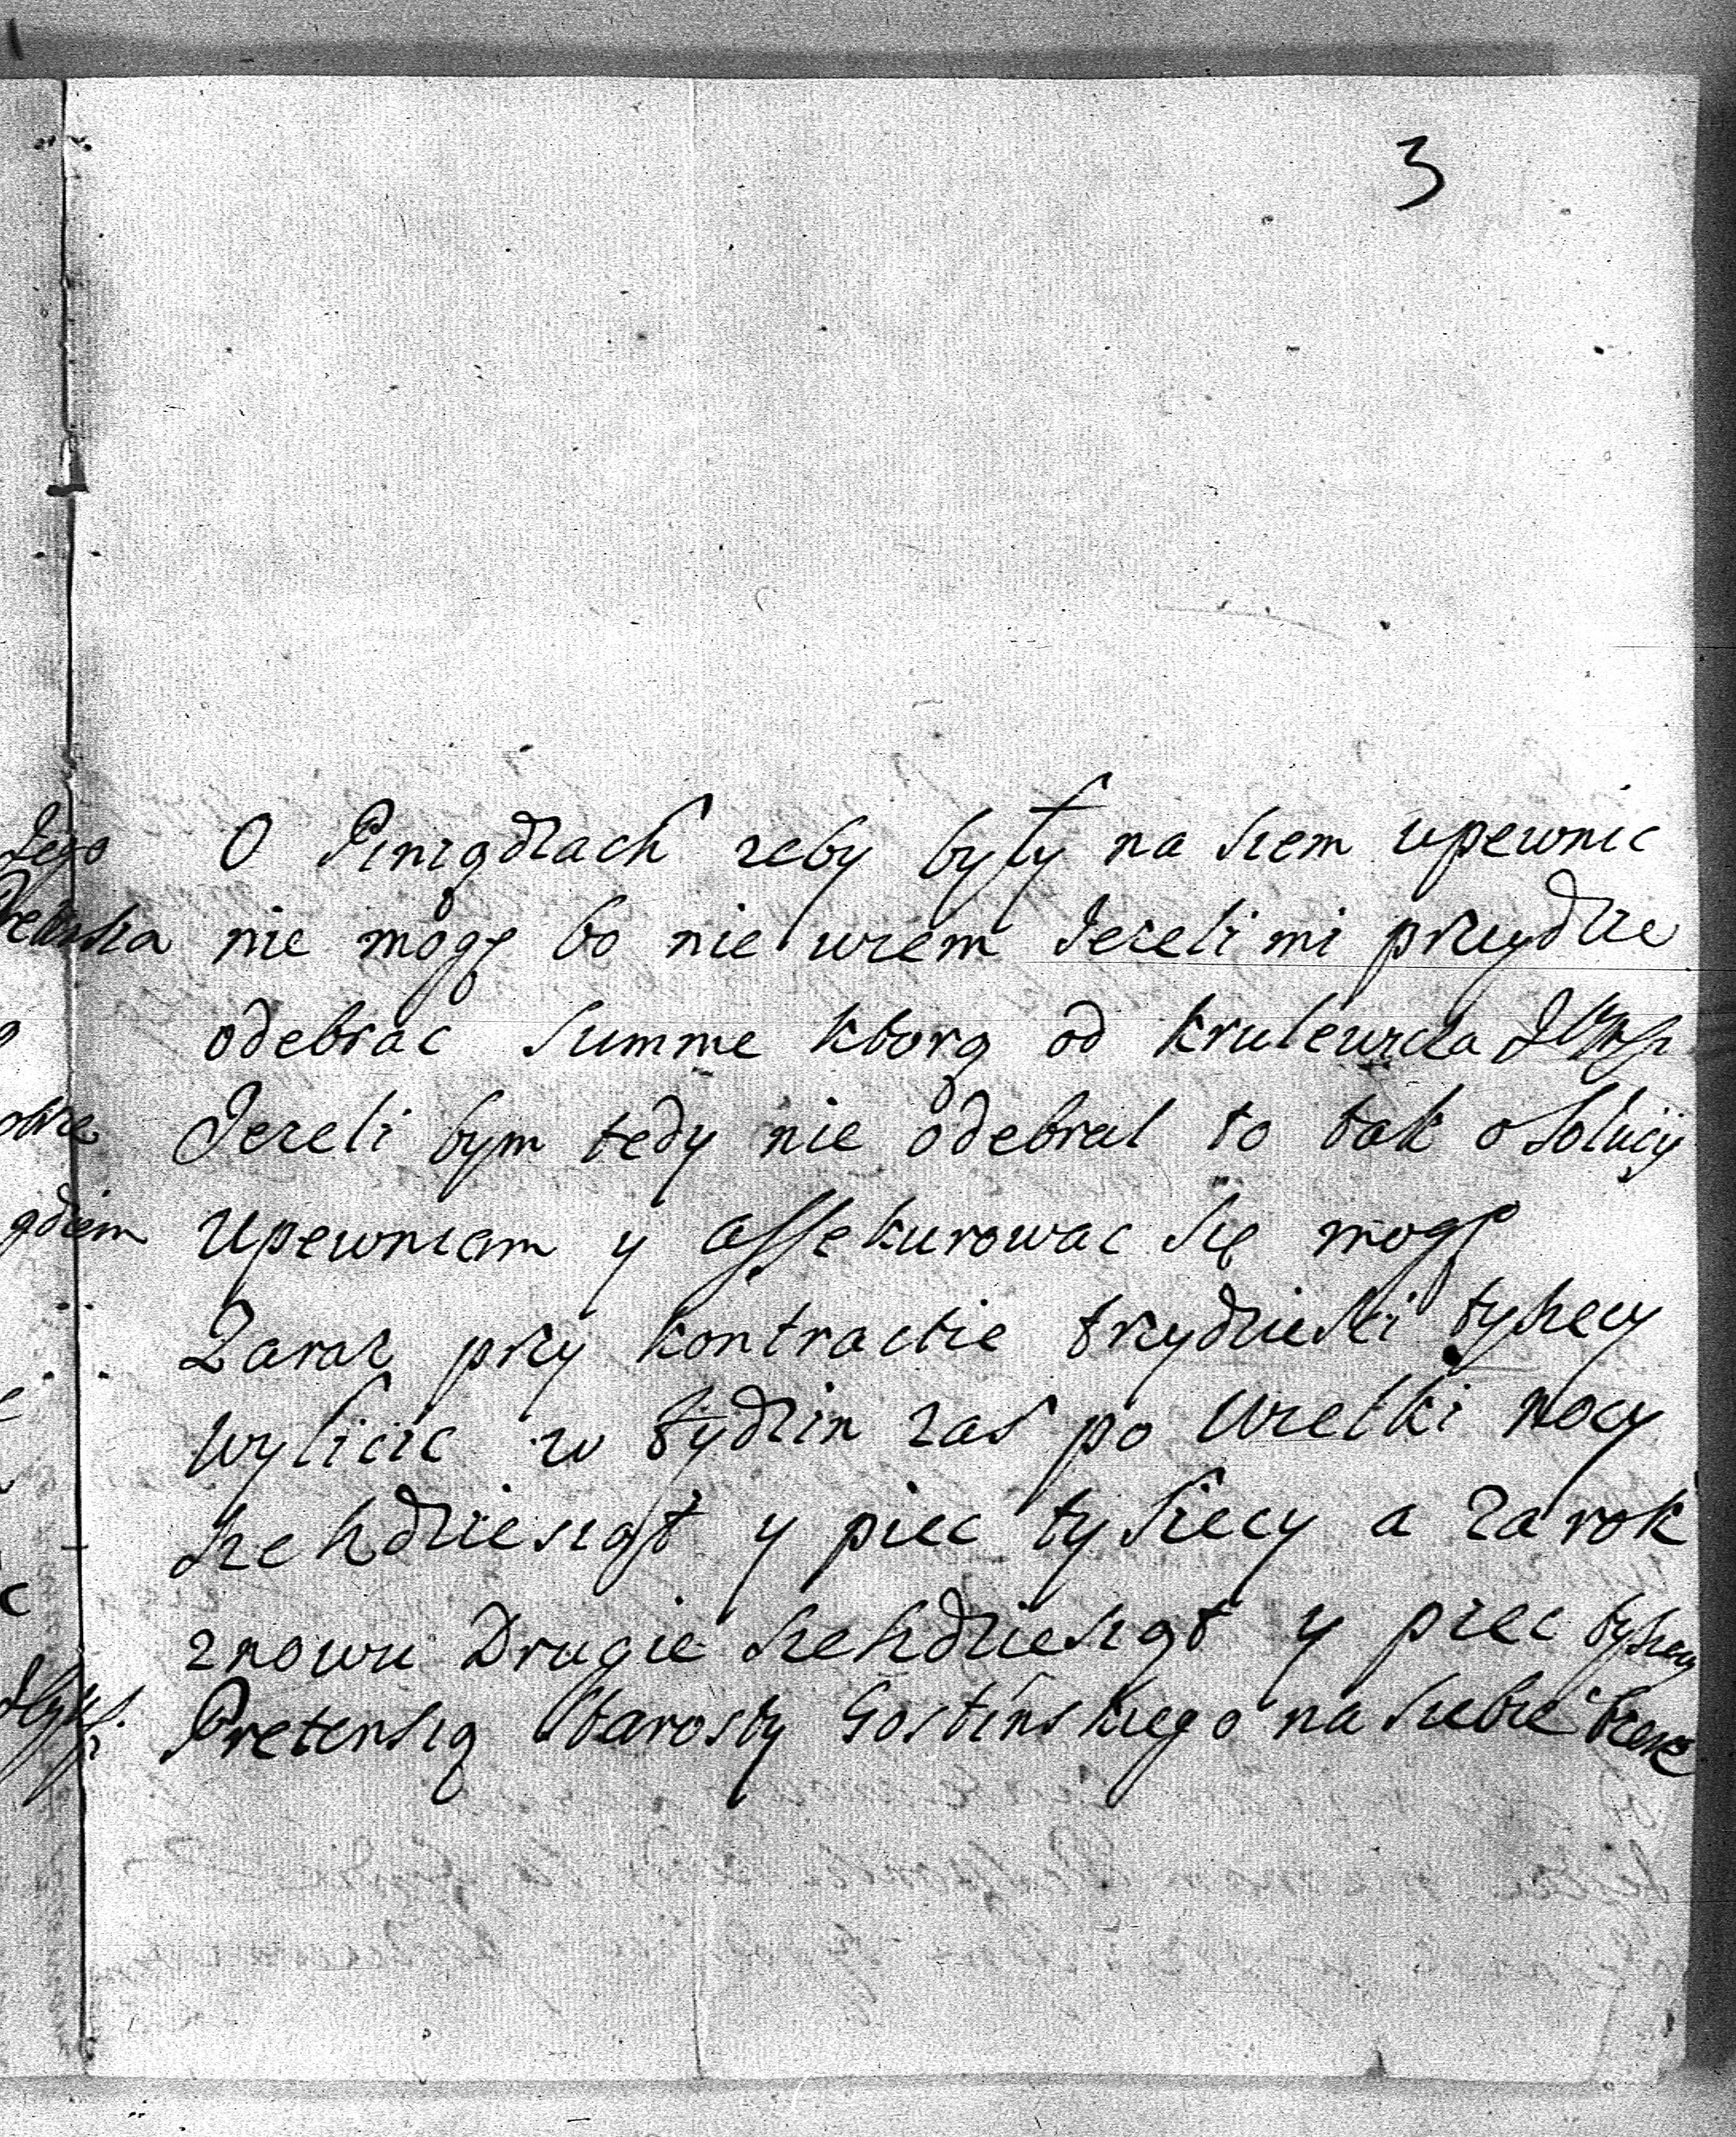 3
O Piniądzach zeby były na siem upewnic
nie mogę bo nie wiem Jezeli mi przydzie
odebrac Summe ktorą od krulewicza
Jezeli bym tedy nie odebral to tak o Solucyi
Upewniam y assekurowac się mogę
Zaraz przy kontractie trzydziesci tysiecy
wylicic w tydzin zas po wielki nocy
szehdziesiąt y piec tysiecy a za rok
znowu Drugie szehdziesiąt y piec tysiecy
Pretensią Starosty Gostinskiego na siebie biere